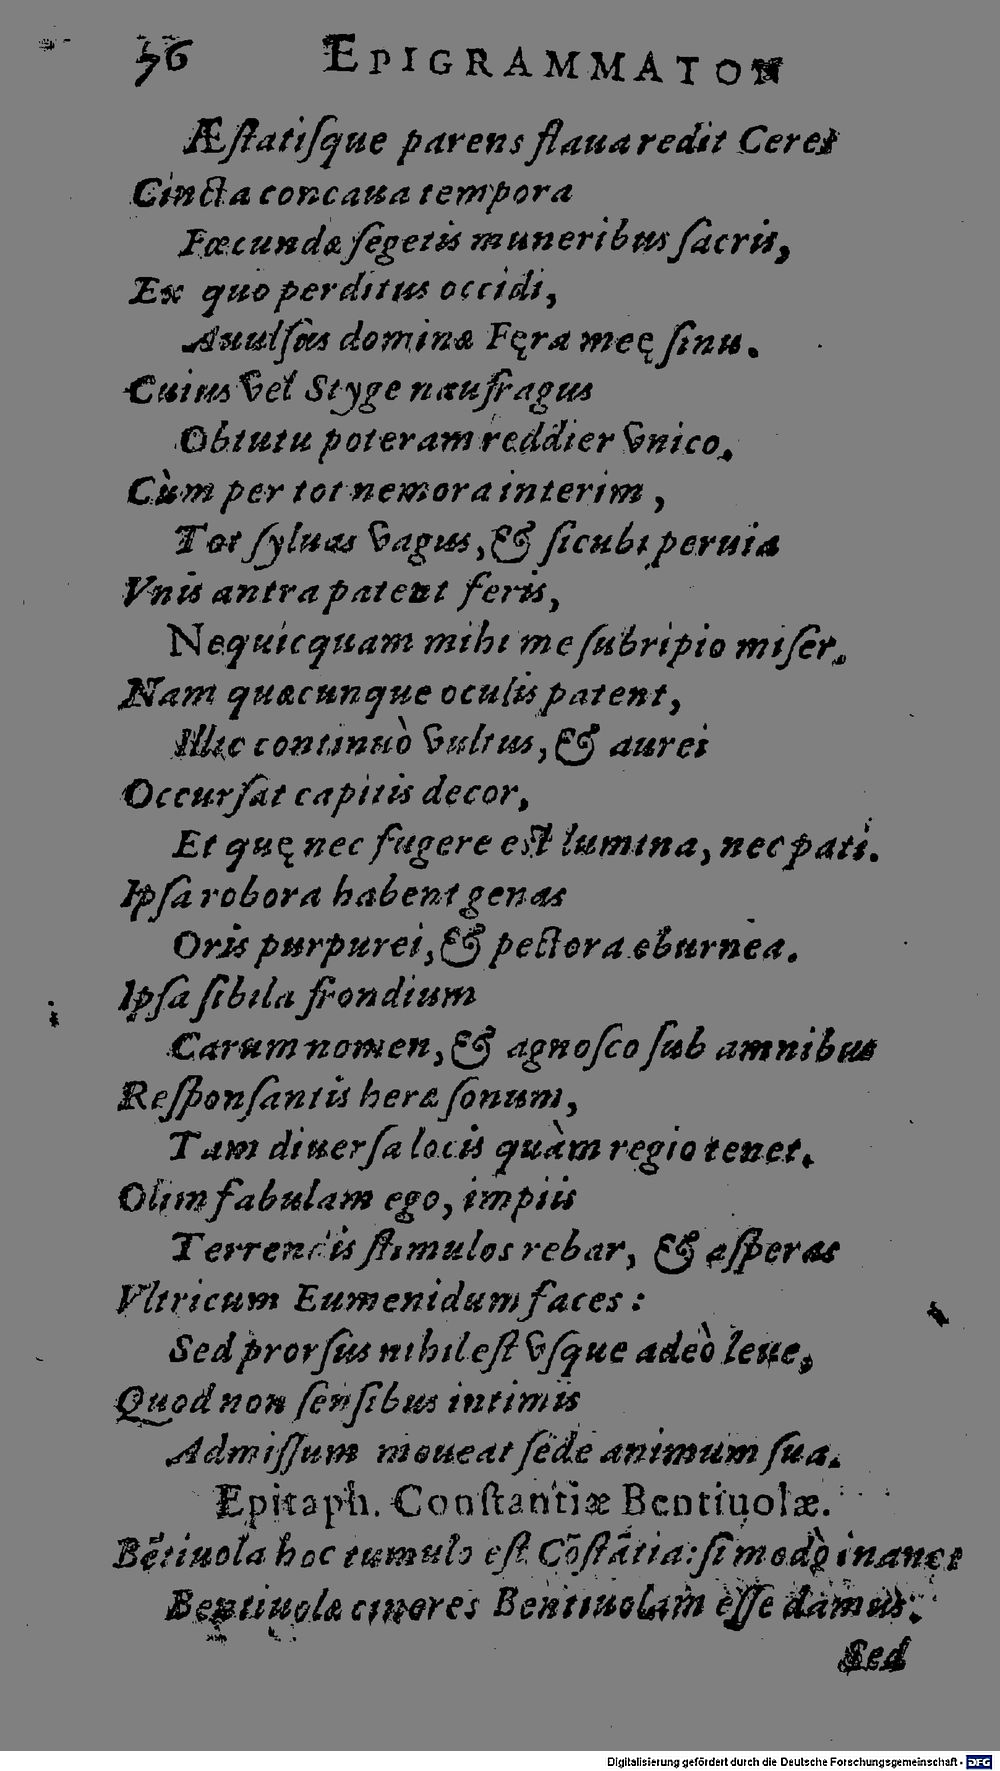 56 EPIGRAMMATON
Æſtatiſque parens flaua redit Ceres
Cincta concaua tempora
Fœcundæ ſegetis muneribus ſacris,
Ex quo perditus occidi,
Auulſus dominæ Fęra meę ſinu.
Cuius vel Styge naufragus
Obtutu poteram reddier vnico.
Cùm per tot nemora interim,
Tot ſyluas vagus, & ſicubi peruia
Vnis antra patent feris,
Nequicquam mihi me ſubripio miſer.
Nam quæcunque oculis patent,
Illic continuò vultus, & aurei
Occurſat capitis decor,
Et quę nec fugere eſt lumina, nec pati.
Ipſa robora habent genas
Oris purpurei, & pectora eburnea.
Ipſa ſibila frondium
Carum nomen, & agnoſco ſub amnibus
Reſponſantis heræ ſonum,
Tam diuerſa locis quàm regio tenet.
Olim fabulam ego, impiis
Terrendis ſtimulos rebar, & aſperas
Vltricum Eumenidum faces:
Sed prorſus nihil eſt vſque adeò leue,
Quod non ſenſibus intimis
Admiſſum moueat ſede animum ſua.
Epitaph. Conſtantiæ Bentiuolæ.
Bẽtiuola hoc tumulo eſt Cõſtãtia: ſi modò inanes
Bentiuolæ cineres Bentiuolam eſſe damus.
Sed
Digitalisierung gefördert durch die Deutsche Forschungsgemeinschaft - DFG